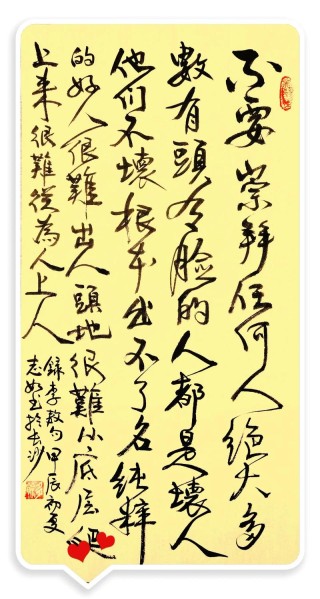 不要崇拜任何人绝大多
數有頭有脸的人都是壞人
他们不壞根本出不了名純粹
的好人很難出人頭地很難从底层爬
上来很難從為人上人
錄李敖句甲辰初夏
书於长沙